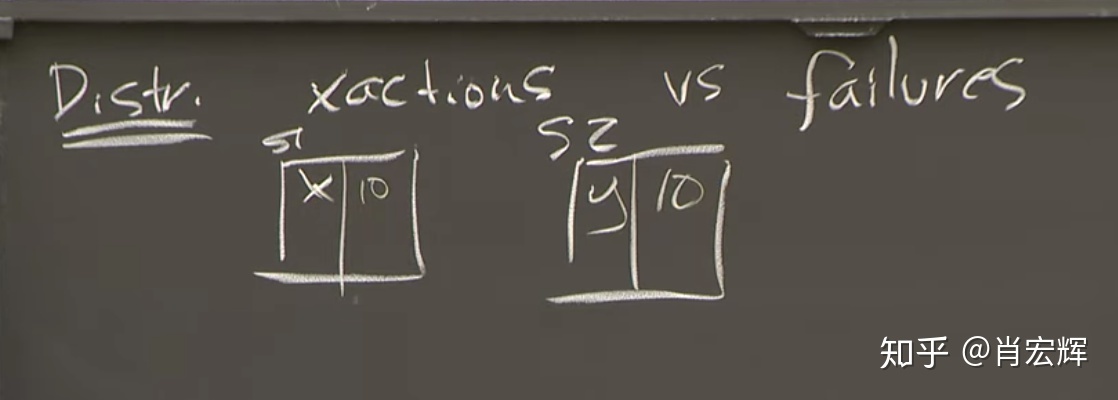 Distr. xactions vs failures
S1 S2
x 10 y 10
知乎 @肖宏辉